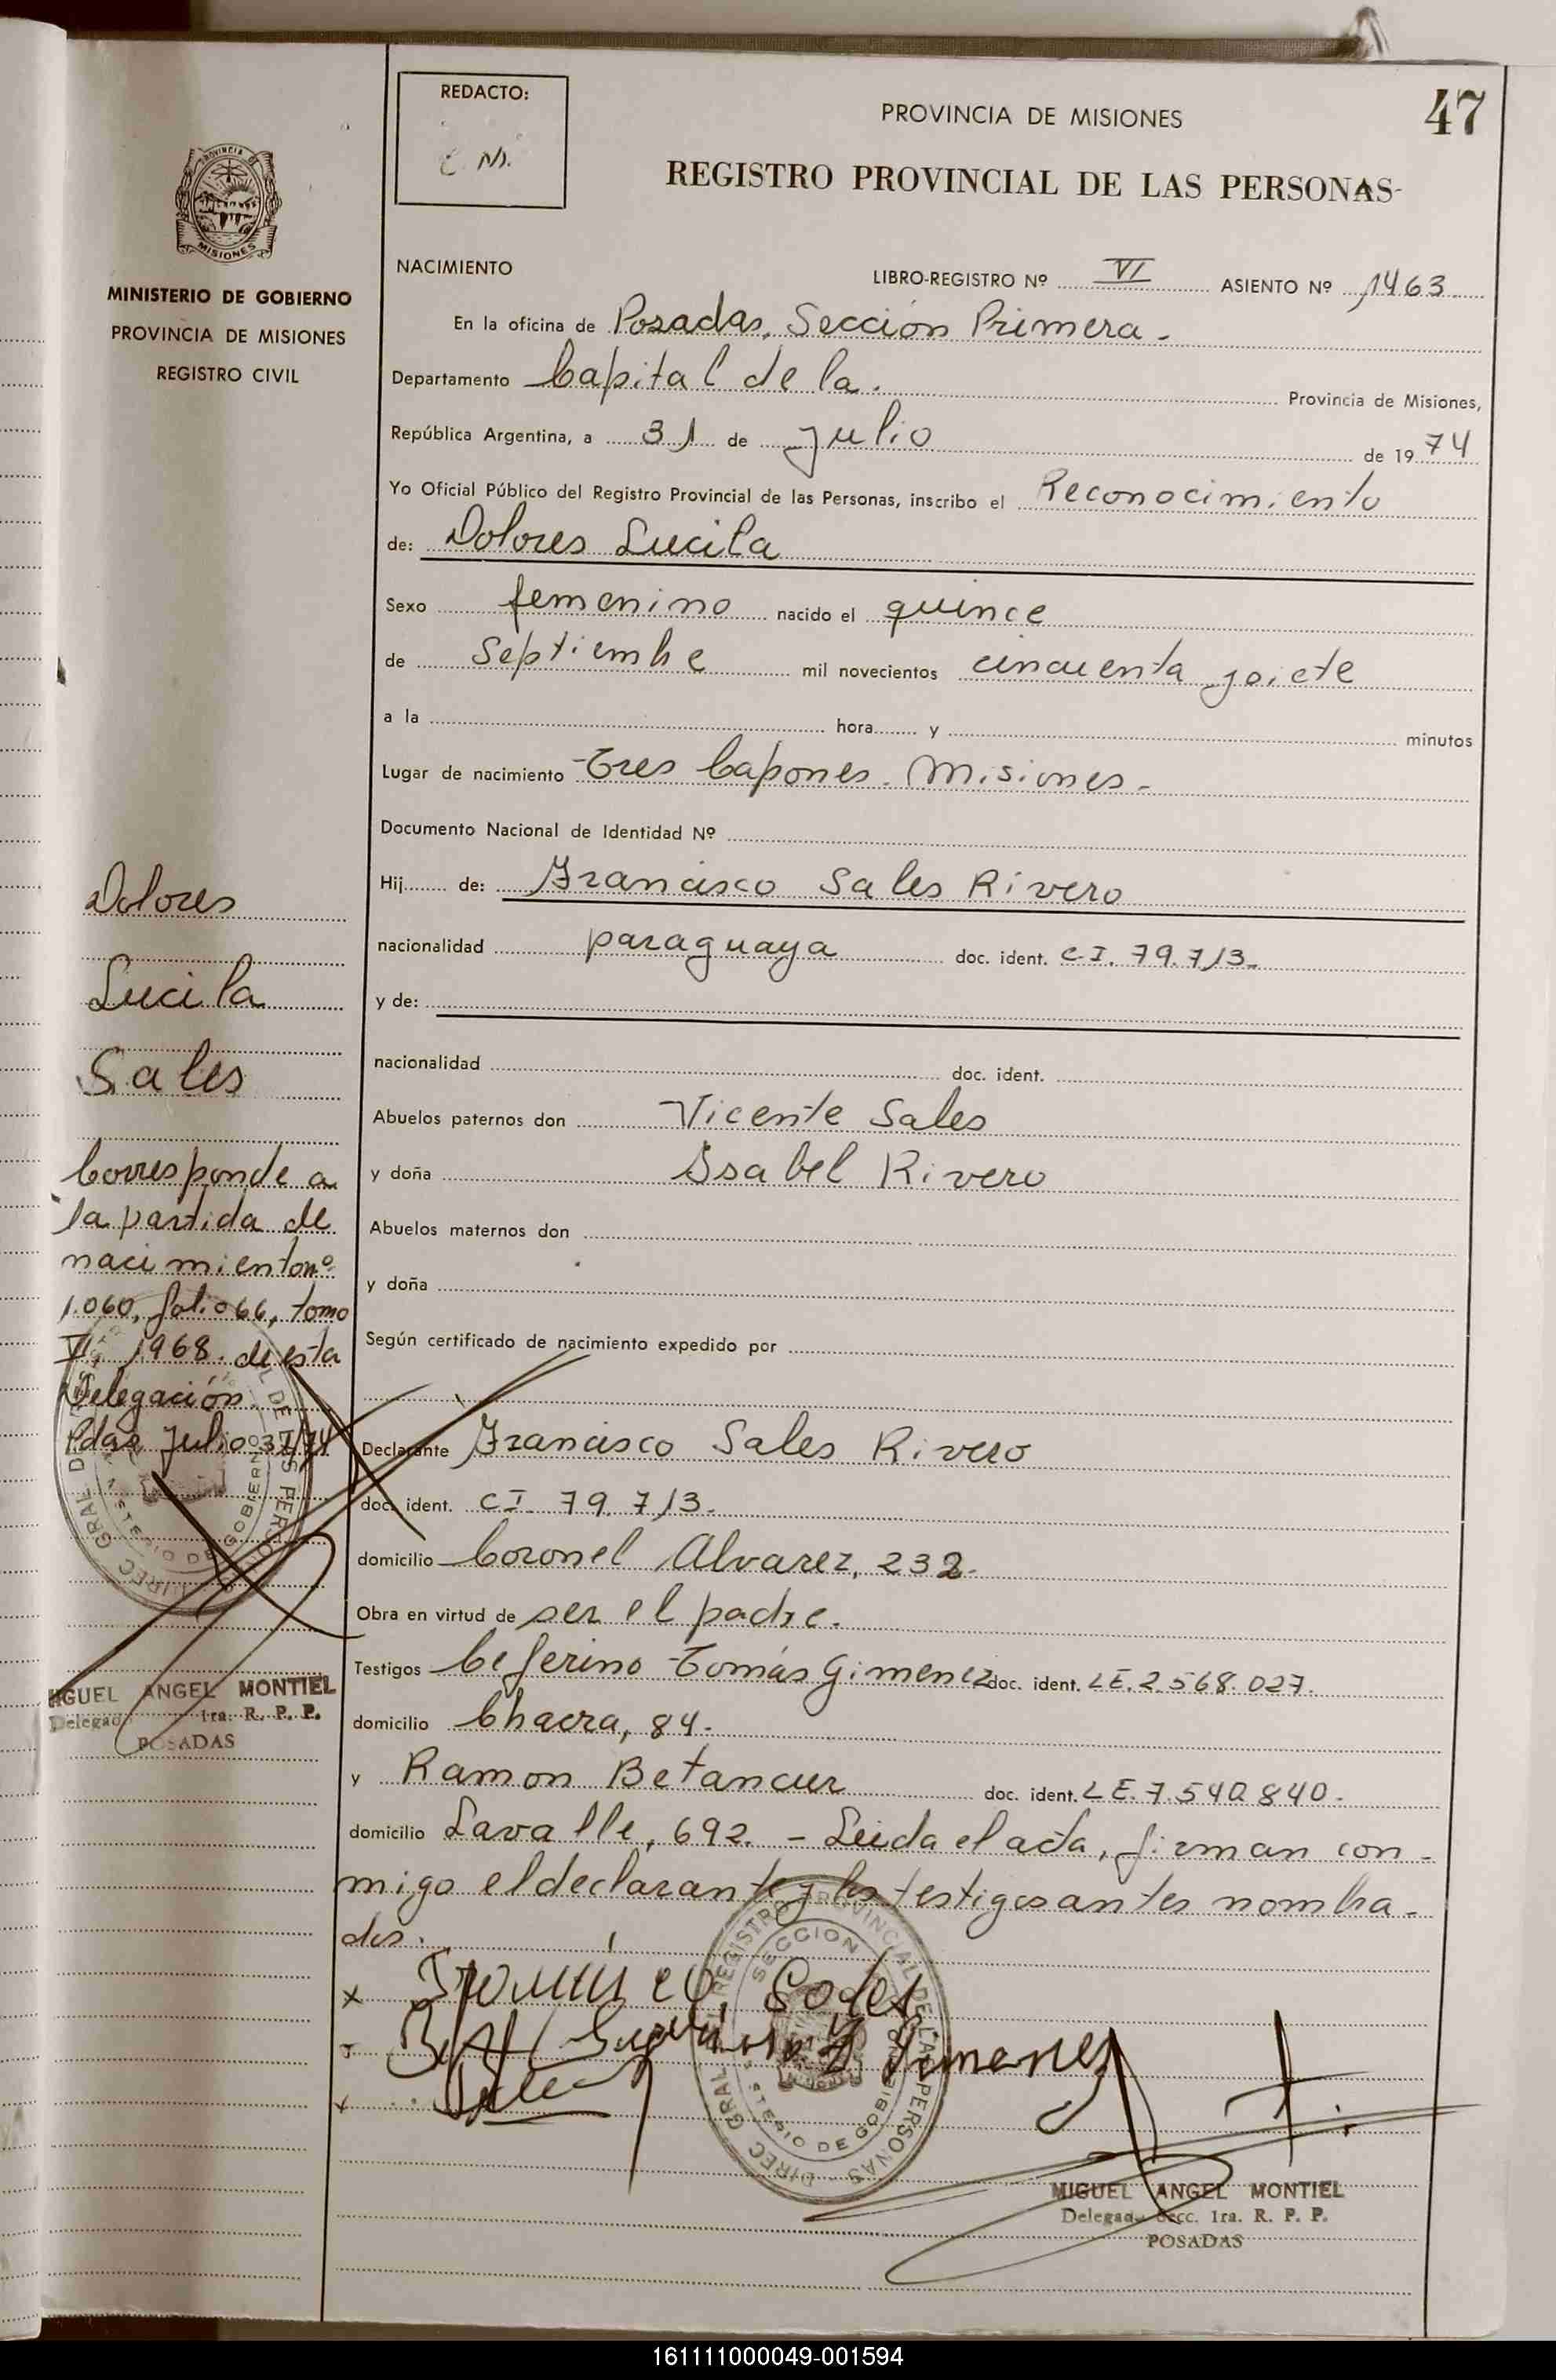 REDACTO:
PROVINCIA DE MISIONES
47
REGISTRO PROVINCIAL DE LAS PERSONAS
MINISTERIO DE GOBIERNO
PROVINCIA DE MISIONES
REGISTRO CIVIL
NACIMIENTO
LIBRO-REGISTRO Nº VI ASIENTO Nº 1463
En la oficina de Posadas, Sección Primera -
Departamento Capital de la. Provincia de Misiones,
República Argentina, a 31 de Julio de 1974
Yo Oficial Público del Registro Provincial de las Personas, inscribo el Reconocimiento
de: Dolores Lucila
Sexo femenino nacido el quince
de Septiembre mil novecientos cincuenta y siete
a la hora y minutos
Lugar de nacimiento Tres Capones - Misiones -
Documento Nacional de Identidad Nº
Hij de: Francisco Sales Rivero
nacionalidad paraguaya doc. ident. C.I. 79.713-
y de:
nacionalidad doc. ident.
Abuelos paternos don Vicente Sales
y doña Isabel Rivero
Abuelos maternos don
y doña
Según certificado de nacimiento expedido por
Declarante Francisco Sales Rivero
doc. ident. CI. 79.713-
domicilio Coronel Alvarez, 232-
Obra en virtud de ser el padre.
Testigos Ceferino Tomás Gimenez doc. ident. LE. 2.568.027.
domicilio Chacra, 84-
y Ramon Betancur doc. ident. LE. 7.540.840-
domicilio Lavalle, 692. - Leida el acta, firman con-
migo el declarante y los testigos antes nombra-
dos.
Dolores
Lucila
Sales
Corresponde a
la partida de
nacimiento nº
1.060, folio 66, tomo
VI, 1968. de esta
Delegación.
Pdas Julio 31/74
MIGUEL ANGEL MONTIEL
Delegado 1ra. R. P. P.
POSADAS
MIGUEL ANGEL MONTIEL
Delegado Secc. 1ra. R. P. P.
POSADAS
161111000049-001594